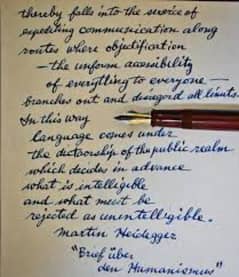 thereby falls into the service of
expediting communication along
routes where objectification
— the uniform accessibility
of everything to everyone —
branches out and disregard all limits.
In this way
language comes under
the dictatorship of the public realm
which decides in advance
what is intelligible
and what must be
rejected as unintelligible.
Martin Heidegger
"Brief über
den Humanismus"